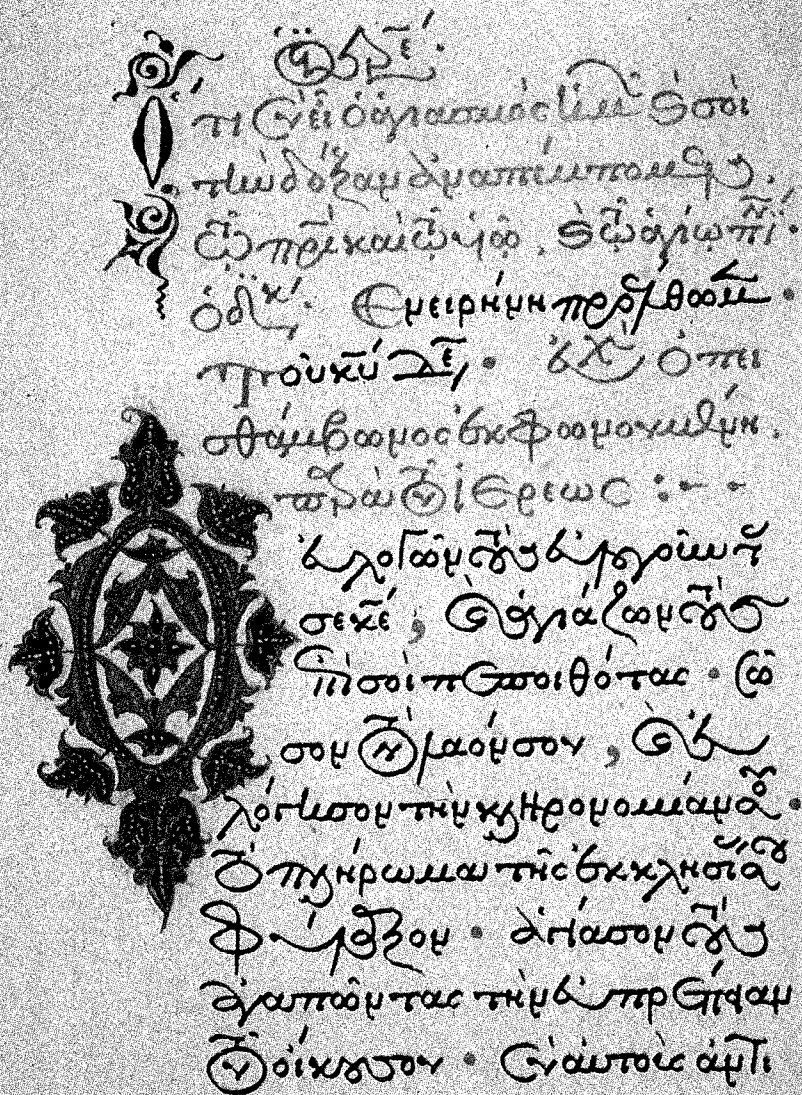 ὁ ἱερ
Ὅτι σὺ εἶ ὁ ἁγιασμὸς ἡμῶν καὶ σοὶ
τὴν δόξαν ἀναπέμπομεν,
τῷ πρὶ καὶ τῷ υἱῷ, καὶ τῷ ἁγίῳ πνι·
ὁ διακ· Ἐν εἰρήνη προέλθωμεν·
τοῦ κυ δε· εὐχὴ ὀπι
σθάμβωνος ἐκφωνουμένη,
παρὰ τοῦ ἱερέως :--
Ὁ εὐλογῶν τοὺς εὐλογοῦντάς
σε κε, καὶ ἁγιάζων τοὺς
ἐπὶ σοὶ πεποιθότας· σῶ
σον τὸν λαόν σου, καὶ εὐ
λόγησον τὴν κληρονομίαν σου·
τὸ πλήρωμα τῆς ἐκκλησίας σου
φύλαξον· ἁγίασον τοὺς
ἀγαπῶντας τὴν εὐπρέπειαν
τοῦ οἴκου σου· σὺ αὐτοὺς ἀντι